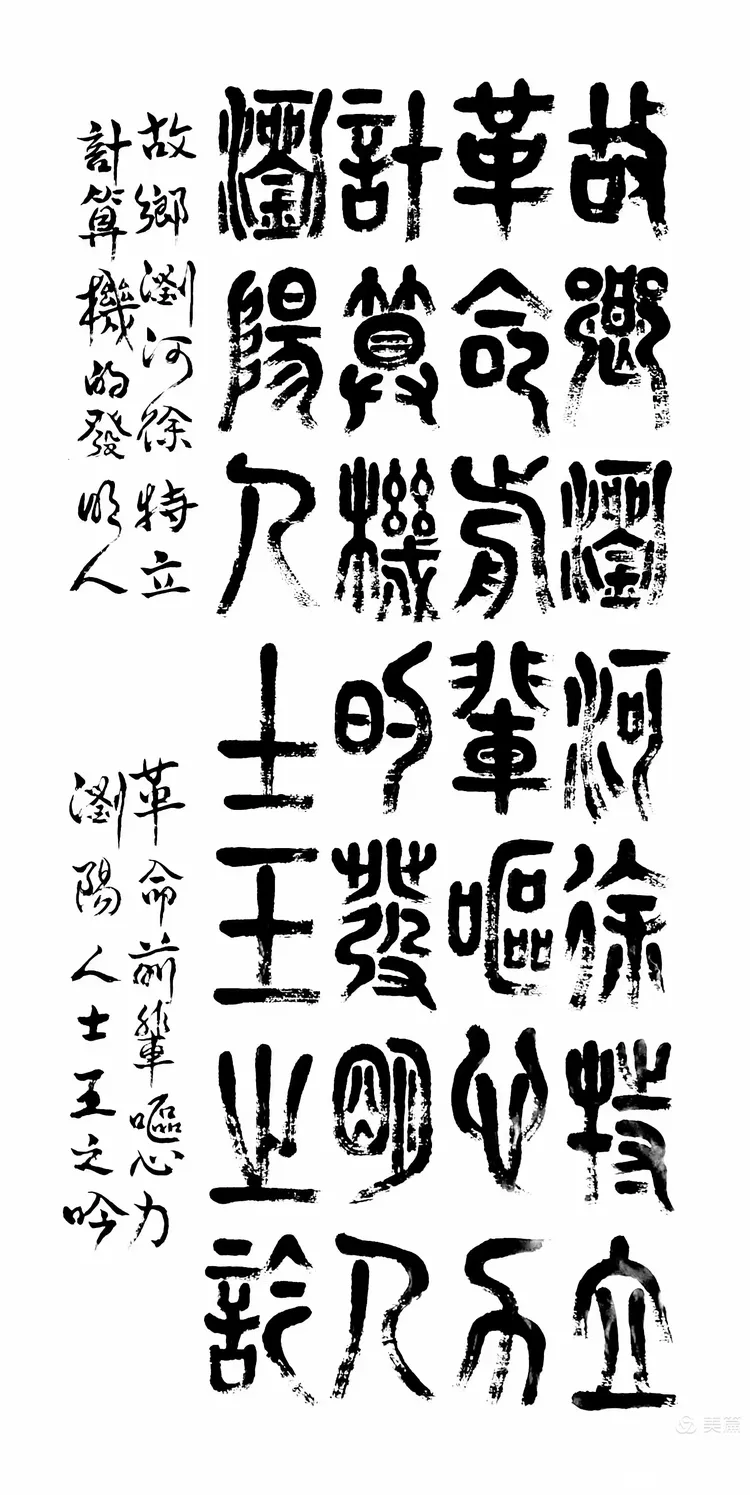 故鄉瀏河徐特立
革命前輩嘔心力
計算機的發明人
瀏陽人士王之訡
故鄉瀏河徐特立
革命前輩嘔心力
計算機的發明人
瀏陽人士王之吟
美篇